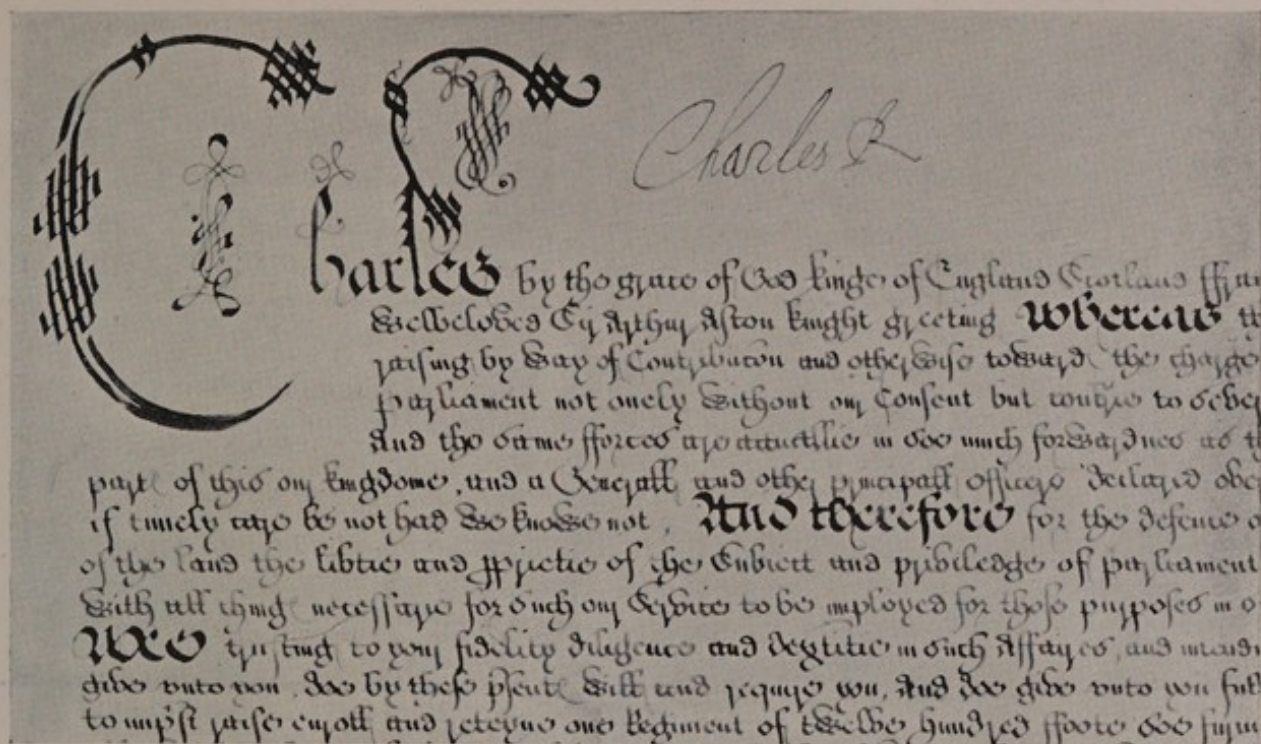 Charles R
Charles by the grace of God kinge of England Scotland ffran
Welbeloved Sir Arthur Aston knight greeting Whereas th
raising by way of Contribucon and otherwise toward the charge
parliament not onely without our Consent but contrie to sever
And the same fforces are actuallie in soe much forwardnes as th
part of this our kingdome, and a Generall and other principall officers declared over
if timely care be not had we knowe not. And therefore for the defence o
of the land the libtie and ppietie of the Subiect and priviledge of parliament
with all thing necessarie for such our Service to be imployed for those purposes in o
Wee trusting to your fidelity diligence and dexteritie in such Affayres, and intendi
give unto you, doe by these psent will and require you, And doe give unto you full
to imprst raise enroll and reteyne one Regiment of twelve hundred ffoote soe furni